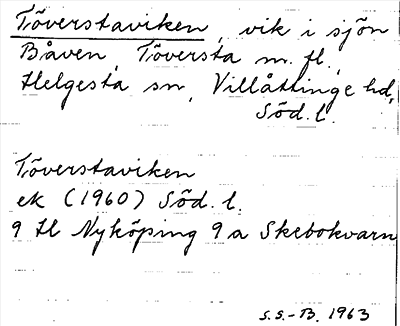 Töverstaviken, vik i sjön
Båven, Töversta m. fl.,
Helgesta sn, Villåttinge hd,
Söd. l.
Töverstaviken
ek (1960) Söd. l.
9 H Nyköping 9 a Skebokvarn
S.S.-B. 1963